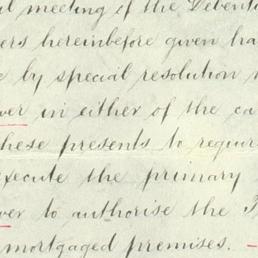 l meeting of the Debent
ers hereinbefore given ha
e by special resolution
ver in either of the ca
hese presents to requir
xecute the primary
ver to authorise the
mortgaged premises.